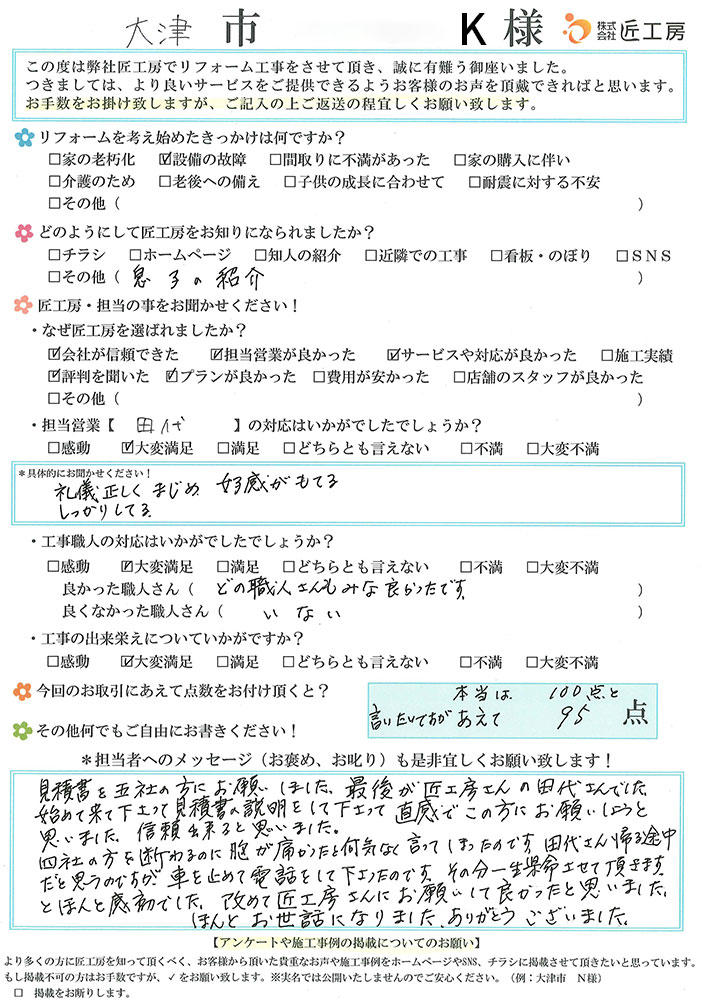 大津 市 K 様 株式会社 匠工房
この度は弊社匠工房でリフォーム工事をさせて頂き、誠に有難う御座いました。
つきましては、より良いサービスをご提供できるようお客様のお声を頂戴できればと思います。
お手数をお掛け致しますが、ご記入の上ご返送の程宜しくお願い致します。
リフォームを考え始めたきっかけは何ですか？
□家の老朽化 ☑設備の故障 □間取りに不満があった □家の購入に伴い
□介護のため □老後への備え □子供の成長に合わせて □耐震に対する不安
□その他（ ）
どのようにして匠工房をお知りになられましたか？
□チラシ □ホームページ □知人の紹介 □近隣での工事 □看板・のぼり □SNS
□その他（ 息子の紹介 ）
匠工房・担当の事をお聞かせください！
・なぜ匠工房を選ばれましたか？
☑会社が信頼できた ☑担当営業が良かった ☑サービスや対応が良かった □施工実績
☑評判を聞いた ☑プランが良かった □費用が安かった □店舗のスタッフが良かった
□その他（ ）
・担当営業【 田代 】の対応はいかがでしたでしょうか？
□感動 ☑大変満足 □満足 □どちらとも言えない □不満 □大変不満
＊具体的にお聞かせください！
礼儀正しく まじめ 好感がもてる
しっかりしてる
・工事職人の対応はいかがでしたでしょうか？
□感動 ☑大変満足 □満足 □どちらとも言えない □不満 □大変不満
良かった職人さん（ どの職人さんもみな良かったです。 ）
良くなかった職人さん（ いない ）
・工事の出来栄えについていかがですか？
□感動 ☑大変満足 □満足 □どちらとも言えない □不満 □大変不満
今回のお取引にあえて点数をお付け頂くと？
本当は 100点と
言いたいですが あえて 95 点
その他何でもご自由にお書きください！
＊担当者へのメッセージ（お褒め、お叱り）も是非宜しくお願い致します！
見積書を五社の方にお願いしました。最後が匠工房さんの田代さんでした。
始めて来て下さって見積書の説明をして下さって直感でこの方にお願いしようと
思いました。信頼出来ると思いました。
四社の方を断わるのに胸が痛かったと何気なく言ってしまったのです。田代さん帰る途中
だと思うのですが 車を止めて電話をして下さったのです。その分一生県命させて頂きます
とほんと感動でした。改めて匠工房さんにお願いして良かったと思いました。
ほんと お世話になりました。ありがとうございました。
【アンケートや施工事例の掲載についてのお願い】
より多くの方に匠工房を知って頂くべく、お客様から頂いた貴重なお声や施工事例をホームページやSNS、チラシに掲載させて頂きたいと思っています。
もし掲載不可の方はお手数ですが、✓をお願い致します。※実名では公開いたしませんのでご安心ください。（例：大津市 N様）
□ 掲載をお断りします。